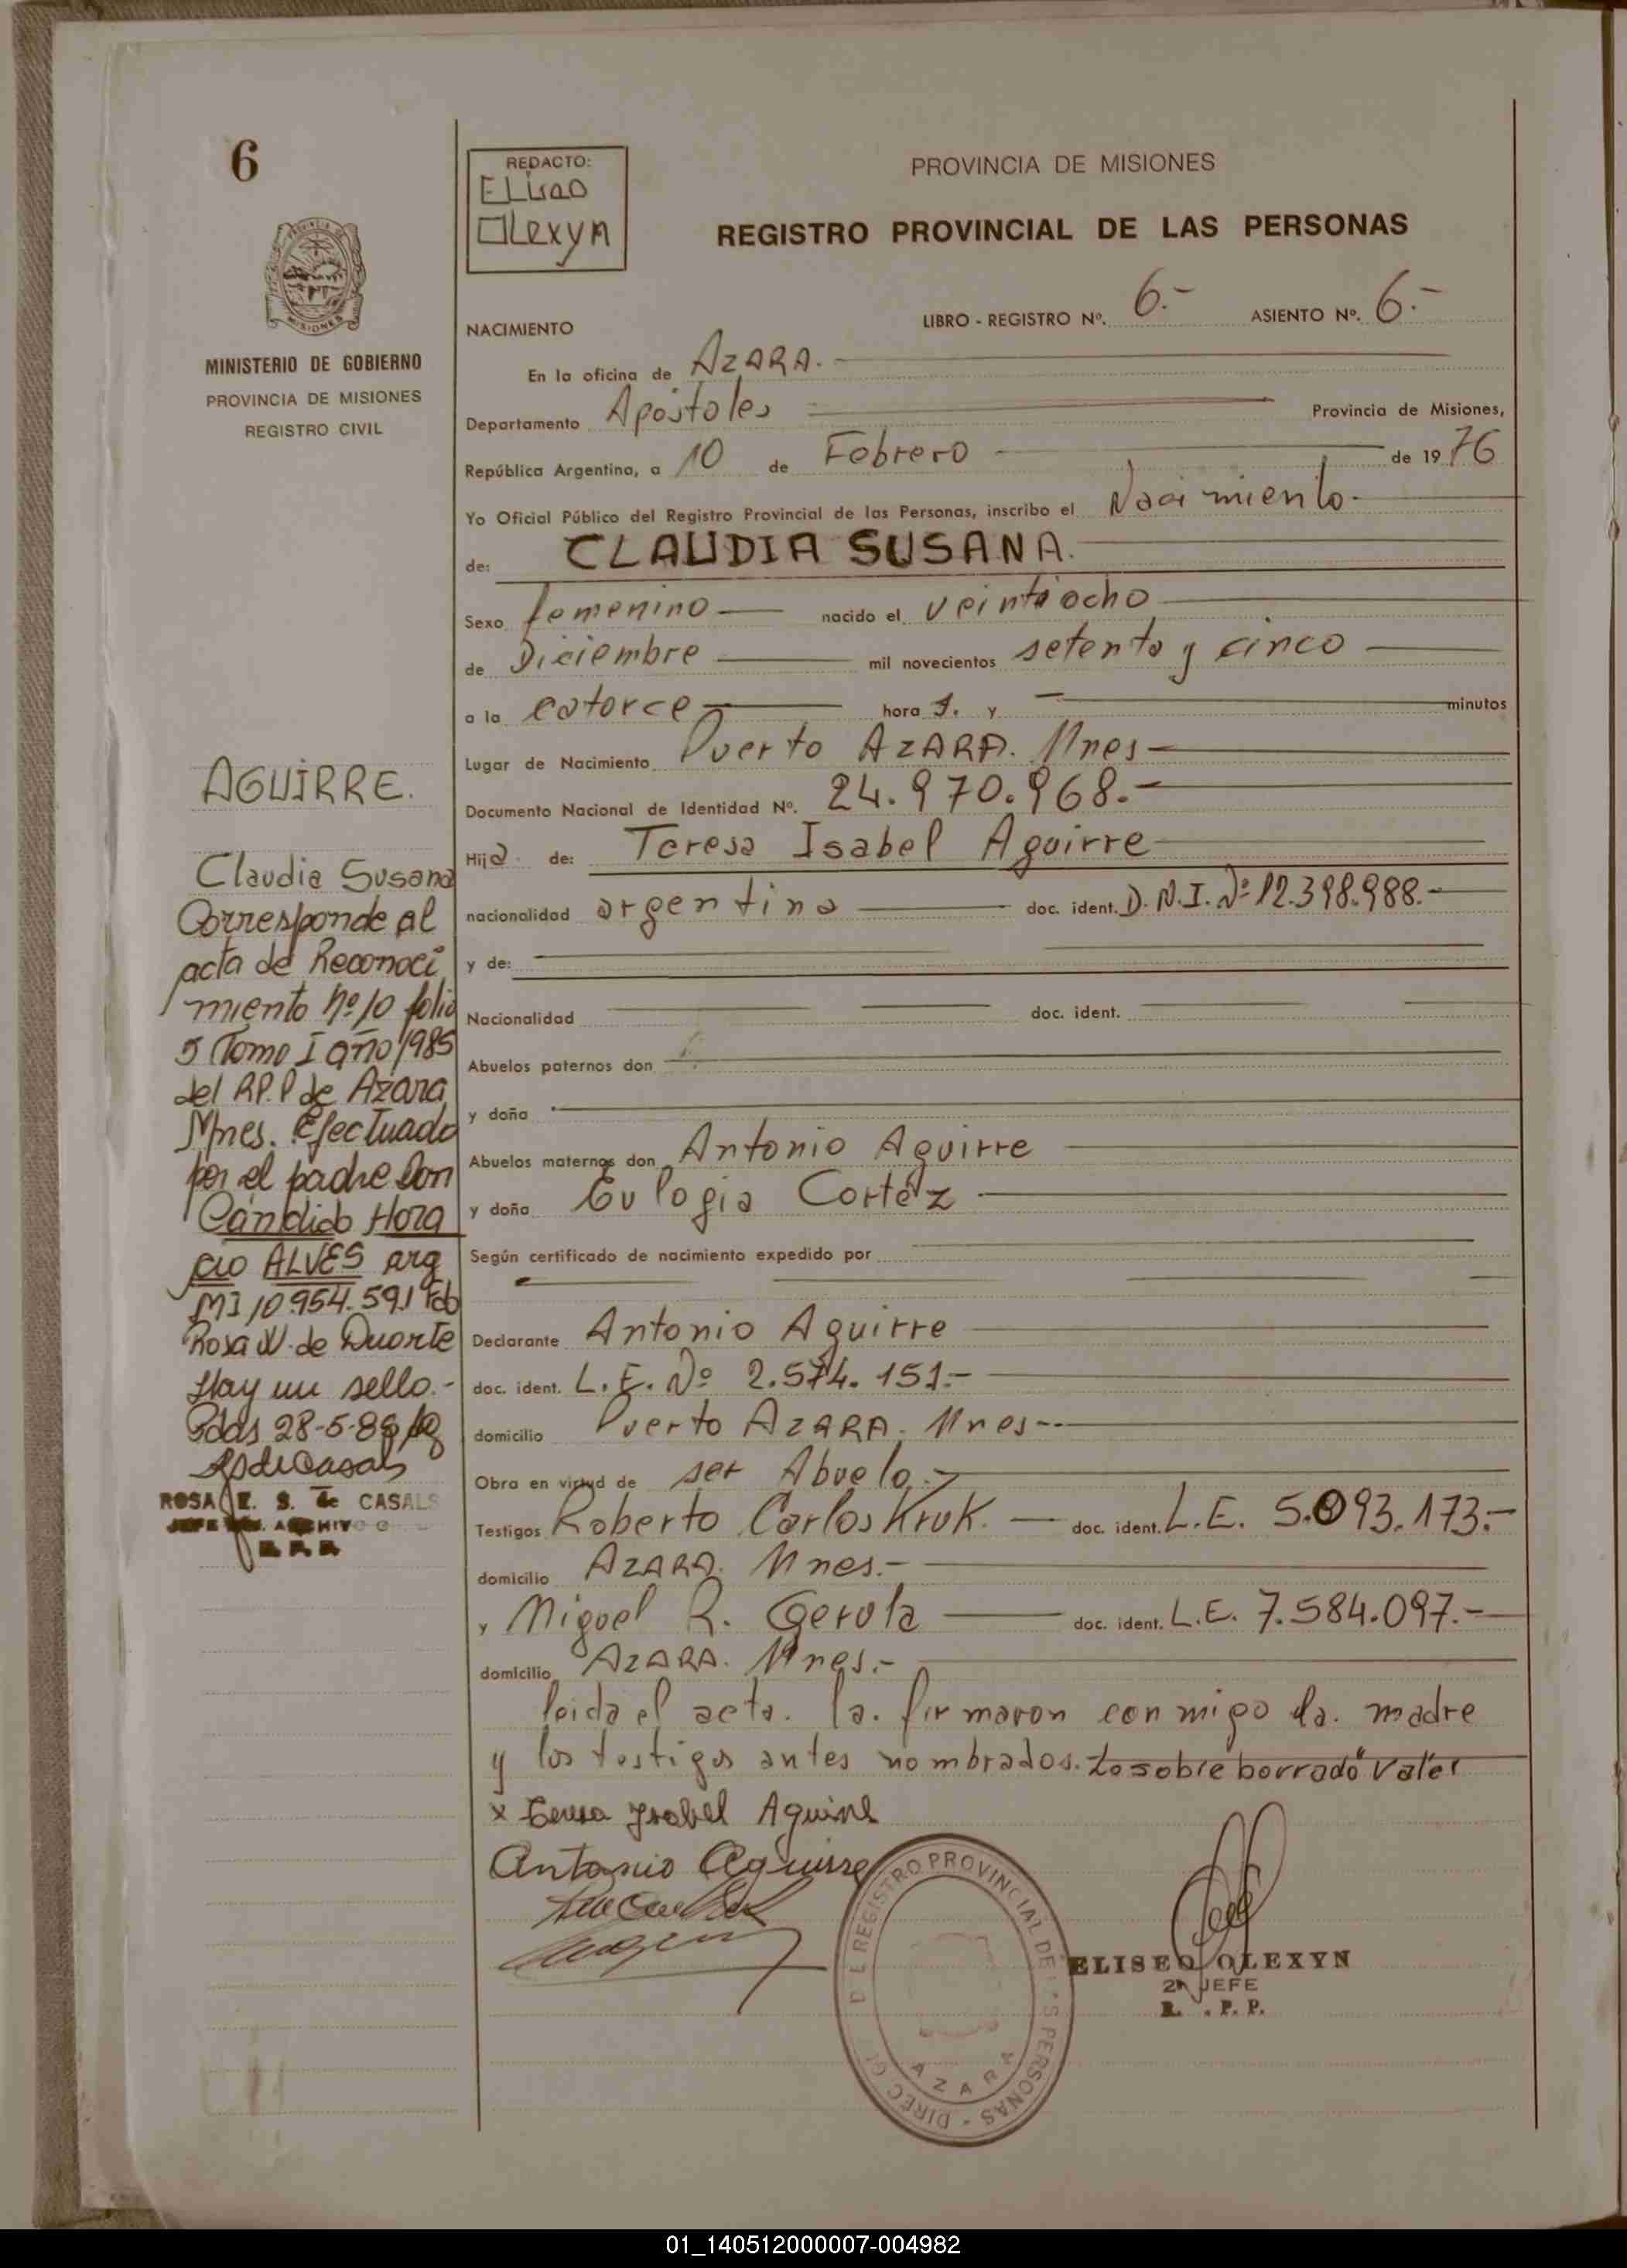 6
MINISTERIO DE GOBIERNO
PROVINCIA DE MISIONES
REGISTRO CIVIL
AGUIRRE.
Claudia Susana
Corresponde al
acta de Reconoci
miento Nº 10 folio
5 Tomo I año 1985
del RP.P de Azara
Mnes. Efectuado
por el padre Don
Cándido Hora
cio ALVES arg
MI 10.954.591 Fdo
Rosa N. de Duarte
Hay un sello.-
Pdas 28-5-86
ROSA E. S. de CASALS
JEFE ARCHIVO
R. P. P.
REDACTO:
Eliseo
Olexyn
PROVINCIA DE MISIONES
REGISTRO PROVINCIAL DE LAS PERSONAS
LIBRO - REGISTRO Nº. 6.- ASIENTO Nº. 6.-
NACIMIENTO
En la oficina de AZARA.
Departamento Apóstoles Provincia de Misiones,
República Argentina, a 10 de Febrero de 1976
Yo Oficial Público del Registro Provincial de las Personas, inscribo el Nacimiento.
de: CLAUDIA SUSANA.
Sexo femenino nacido el veintiocho
de Diciembre mil novecientos setenta y cinco
a la catorce hora s. y minutos
Lugar de Nacimiento Puerto AZARA. Mnes
Documento Nacional de Identidad Nº. 24.970.968.-
Hija de: Teresa Isabel Aguirre
nacionalidad argentina doc. ident. D.N.I. Nº 12.398.988.-
y de:
Nacionalidad doc. ident.
Abuelos paternos don
y doña
Abuelos maternos don Antonio Aguirre
y doña Eulogia Cortéz
Según certificado de nacimiento expedido por
Declarante Antonio Aguirre
doc. ident. L.E. Nº 2.574.151.-
domicilio Puerto AZARA. Mnes--
Obra en virtud de ser Abuelo.-
Testigos Roberto Carlos Kruk. doc. ident. L.E. 5.893.173.-
domicilio AZARA. Mnes.-
y Miguel R. Gerula doc. ident. L.E. 7.584.097.-
domicilio AZARA. Mnes.-
leida el acta. la. firmaron conmigo la. madre
y los testigos antes nombrados. Lo sobre borrado "Vale"
x Teresa Ysabel Aguirre
Antonio Aguirre
REGISTRO PROVINCIAL DE LAS PERSONAS - DIREC
AZARA
ELISEO OLEXYN
2º JEFE
R. P. P.
01_140512000007-004982